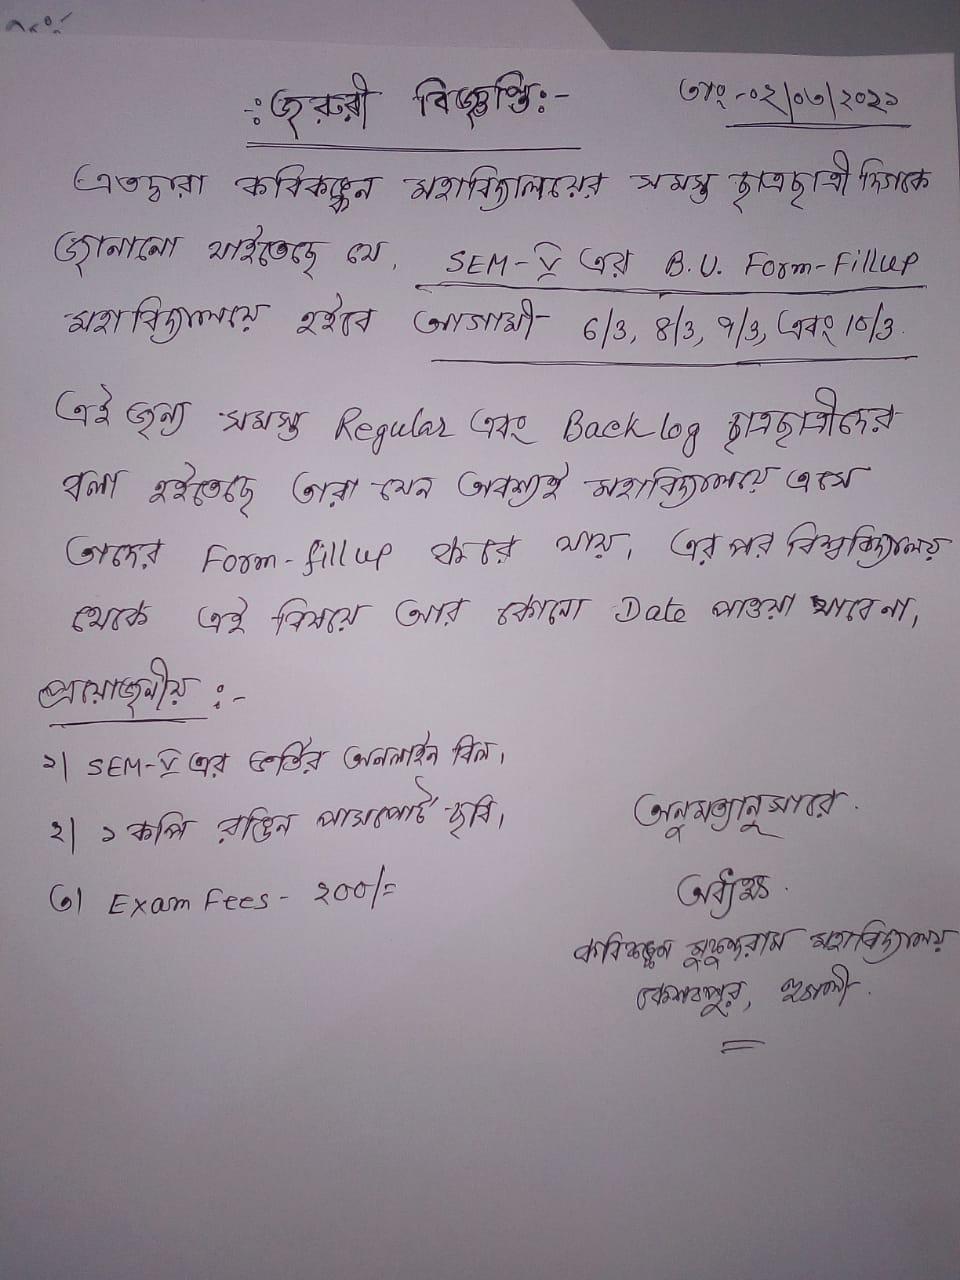 -: জরুরী বিজ্ঞপ্তি :- তাং -০২/০৩/২০২১
এতদ্বারা কবিকঙ্কন মহাবিদ্যালয়ের সমস্ত ছাত্রছাত্রী দিগকে
জানানো যাইতেছে যে, SEM-V এর B.U. Form-Fillup
মহাবিদ্যালয়ে হইবে আগামী- 6/3, 8/3, 9/3, এবং 10/3.
এই জন্য সমস্ত Regular এবং Backlog ছাত্রছাত্রীদের
বলা হইতেছে তারা যেন অবশ্যই মহাবিদ্যালয়ে এসে
তাদের Form-fillup করে যায়, এর পর বিশ্ববিদ্যালয়
থেকে এই বিষয়ে আর কোনো Date পাওয়া যাবে না,
প্রয়োজনীয় :-
১| SEM-V এর ভর্তির অনলাইন বিল,
২| ১ কপি রঙিন পাসপোর্ট ছবি,
৩| Exam Fees - ২০০/=
অনুমত্যানুসারে.
অধ্যক্ষ.
কবিকঙ্কন মুকুন্দরাম মহাবিদ্যালয়
কেশবপুর, হুগলী.